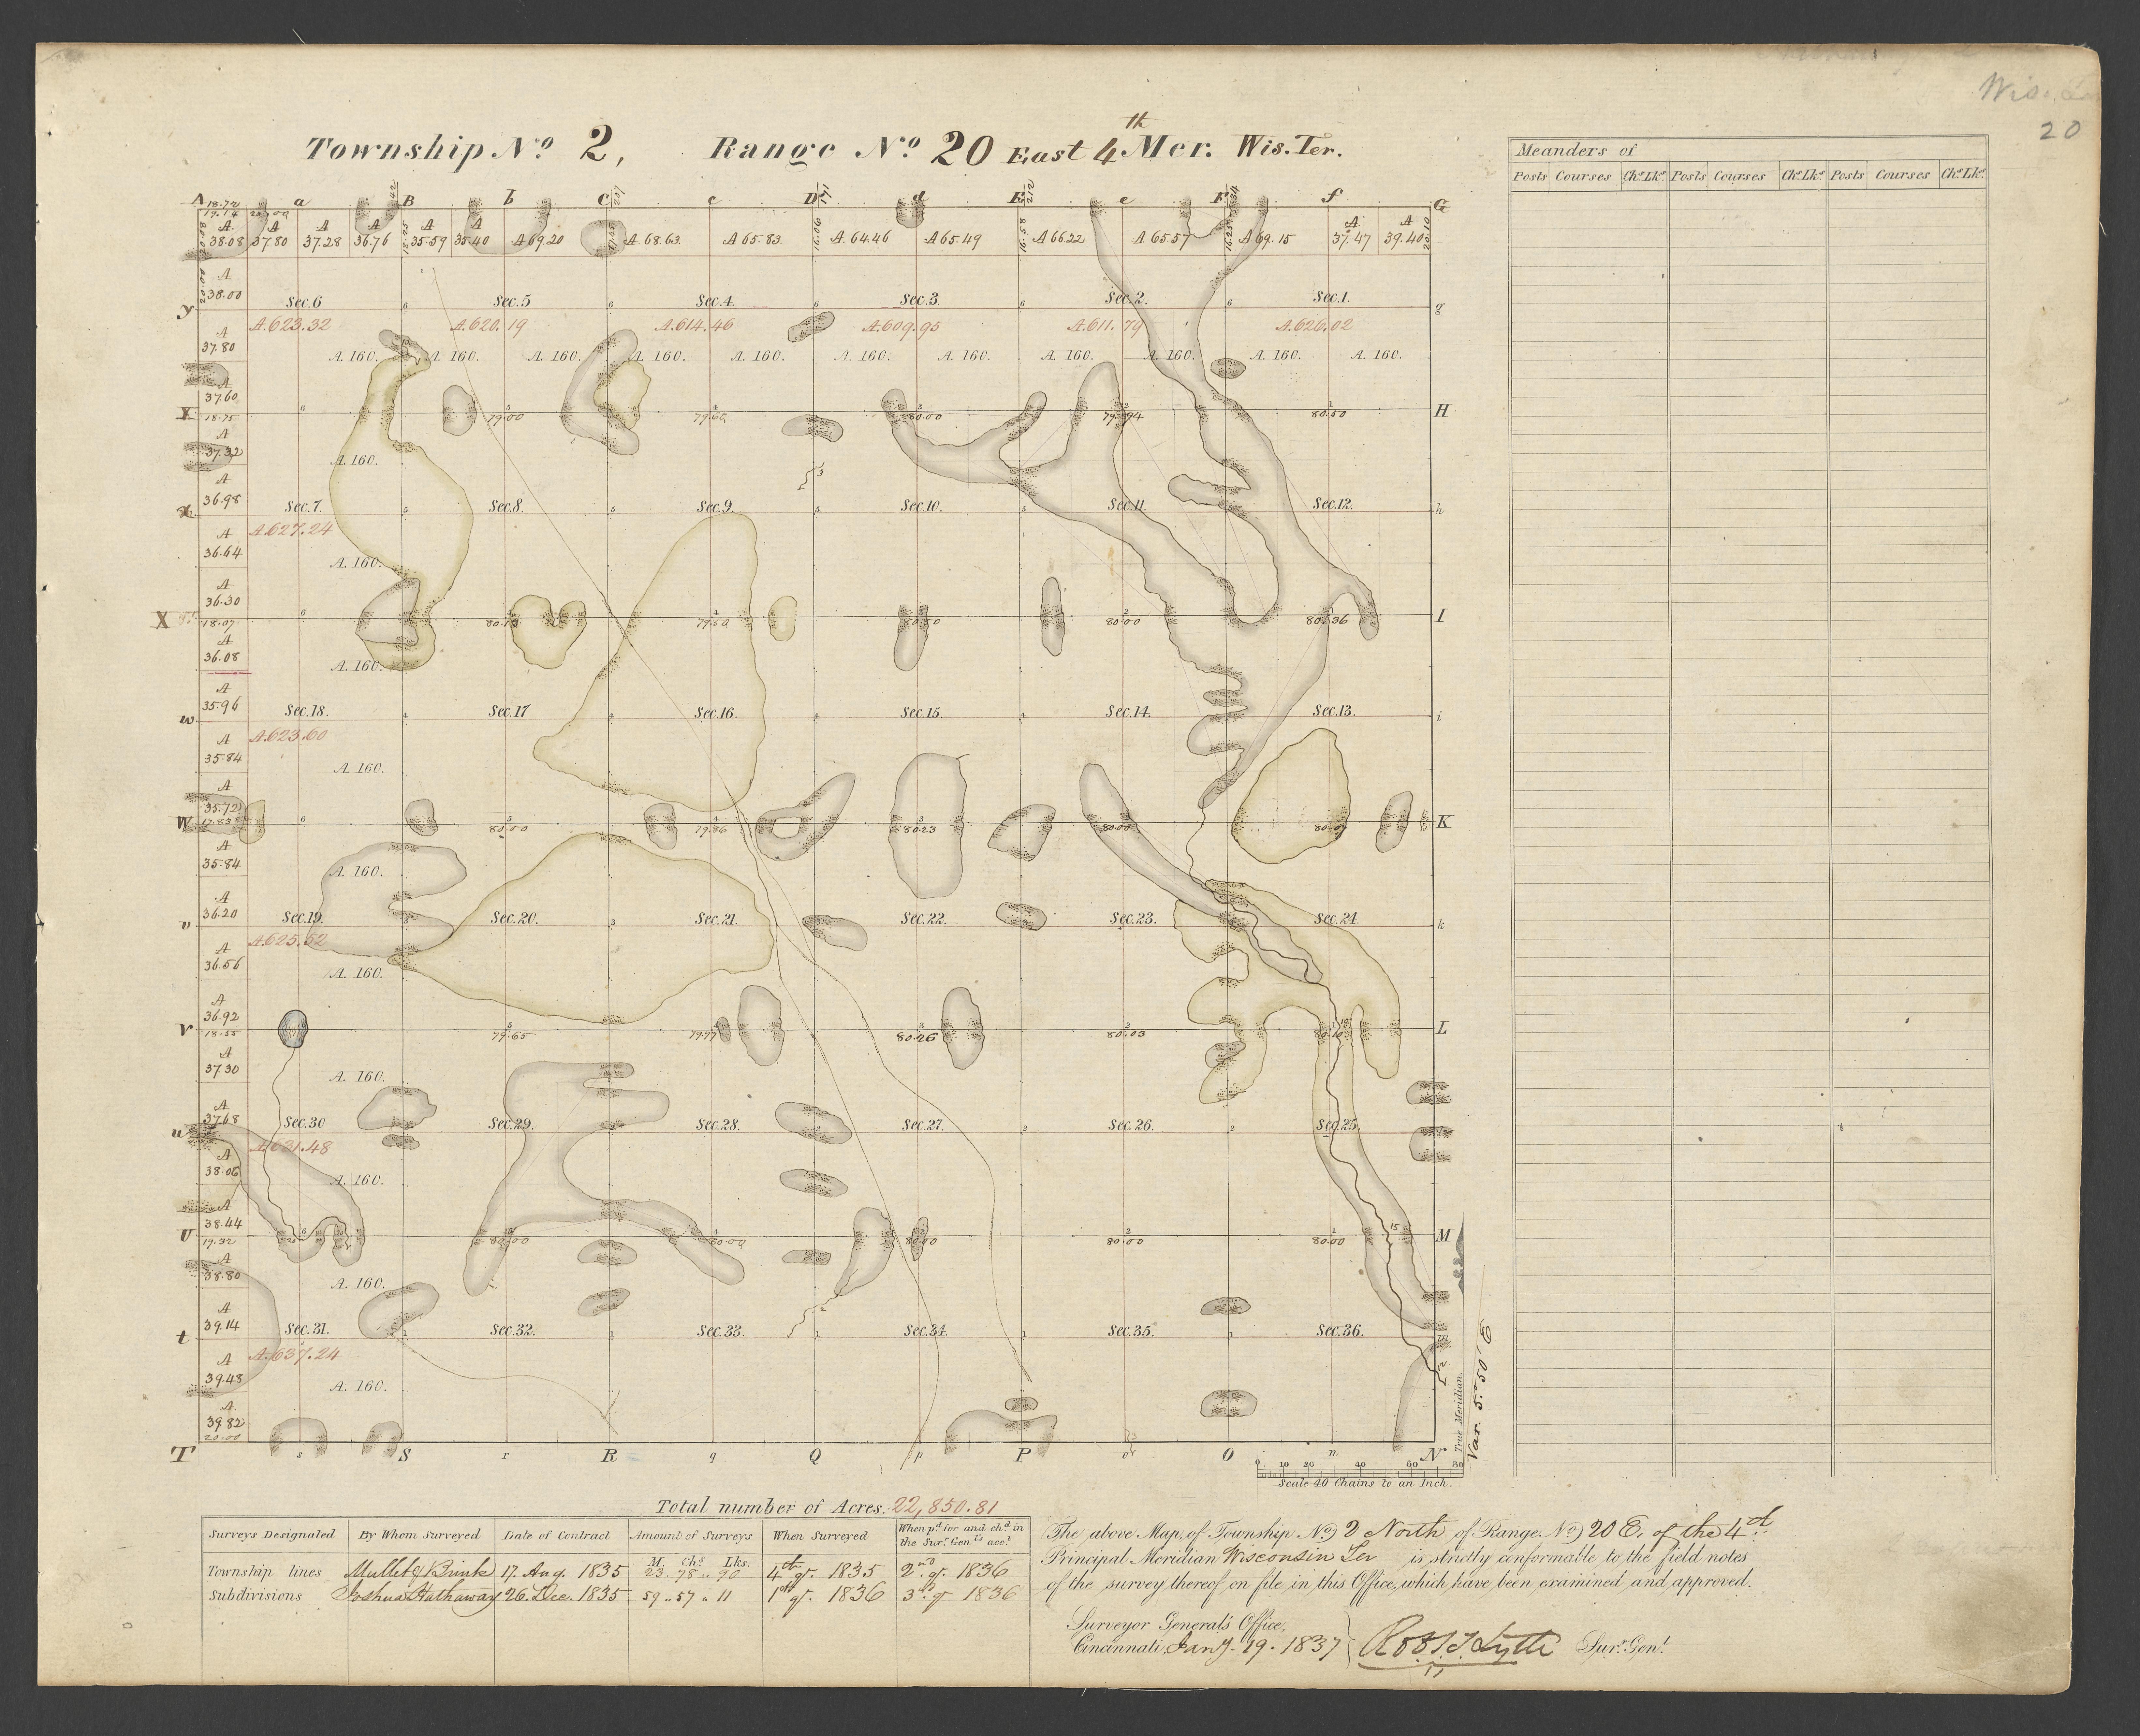 Wis.
20
Township No. 2, Range No. 20 East 4th Mer. Wis. Ter.
Meanders of
Posts Courses Chs Lks. Posts Courses Chs Lks. Posts Courses Chs Lks.
A a B b C c D d E e F f G
18.72
19.14 20.00
A. 38.08 A 37.80 A 37.28 A 36.76 A 35.59 A 35.40 A 69.20 A. 68.63 A 65.83 A. 64.46 A 65.49 A 66.22 A 65.57 A 69.15 A. 37.47 A 39.40
A 38.00
Sec. 6 Sec. 5 Sec. 4 Sec. 3. Sec. 2. Sec. 1.
y g
A. 623.32 A. 620.19 A. 614.46 A. 609.95 A. 611.79 A. 626.02
A 37.80
A. 160. A. 160. A. 160. A. 160. A. 160. A. 160. A. 160. A. 160. A. 160. A. 160. A. 160.
A 37.60
Y 18.75 79.00 79.60 80.00 79.94 80.50 H
A 37.32
A. 160.
A 36.98
Sec. 7. Sec. 8. Sec. 9. Sec. 10. Sec. 11. Sec. 12.
x h
A. 627.24
A 36.64
A. 160.
A 36.30
X 18.07 79.50 80.00 80.36 I
A 36.08
A. 160.
A 35.96
Sec. 18. Sec. 17 Sec. 16. Sec. 15. Sec. 14. Sec. 13.
w i
A. 623.60
A 35.84
A. 160.
A 35.72
W 17.83 80.00 79.36 80.23 80.00 K
A 35.84
A. 160.
A 36.20
Sec. 19. Sec. 20. Sec. 21. Sec. 22. Sec. 23. Sec. 24.
v k
A. 625.52
A 36.56
A. 160.
A 36.92
V 18.55 79.65 79.77 80.26 80.03 80.10 L
A 37.30
A. 160.
A 37.68
Sec. 30 Sec. 29. Sec. 28. Sec. 27. Sec. 26. Sec. 25.
u
A. 631.48
A 38.06
A. 160.
A 38.44
U 19.32 80.00 80.00 80.00 80.00 80.00 M
A 38.80
A. 160.
A 39.14
Sec. 31. Sec. 32. Sec. 33. Sec. 34. Sec. 35. Sec. 36.
t m
A. 637.24
A 39.48
A. 160.
A. 39.82
20.00
T s S r R q Q p P o O n N
True Meridian.
Var. 5.° 50' E
0 10 20 40 60 80
Scale 40 Chains to an Inch.
Total number of Acres. 22,850.81
Surveys Designated By Whom Surveyed Date of Contract Amount of Surveys When Surveyed When pd for and chd in the Surr. Genls acct.
M. Chs Lks.
Township lines Mullet & Brink 17. Aug. 1835 23. 78 „ 90 4th qr. 1835 2nd qr. 1836
Subdivisions Joshua Hathaway 26. Dec. 1835 59 „ 57 „ 11 1st qr. 1836 3rd qr 1836
The above Map, of Township No) 2 North of Range No) 20 E. of the 4th
Principal Meridian Wisconsin Ter is strictly conformable to the field notes
of the survey thereof on file in this Office, which have been examined and approved.
Surveyor General's Office,
Cincinnati, Jany. 19. 1837 Robt. T. Lytle Surr. Genl.